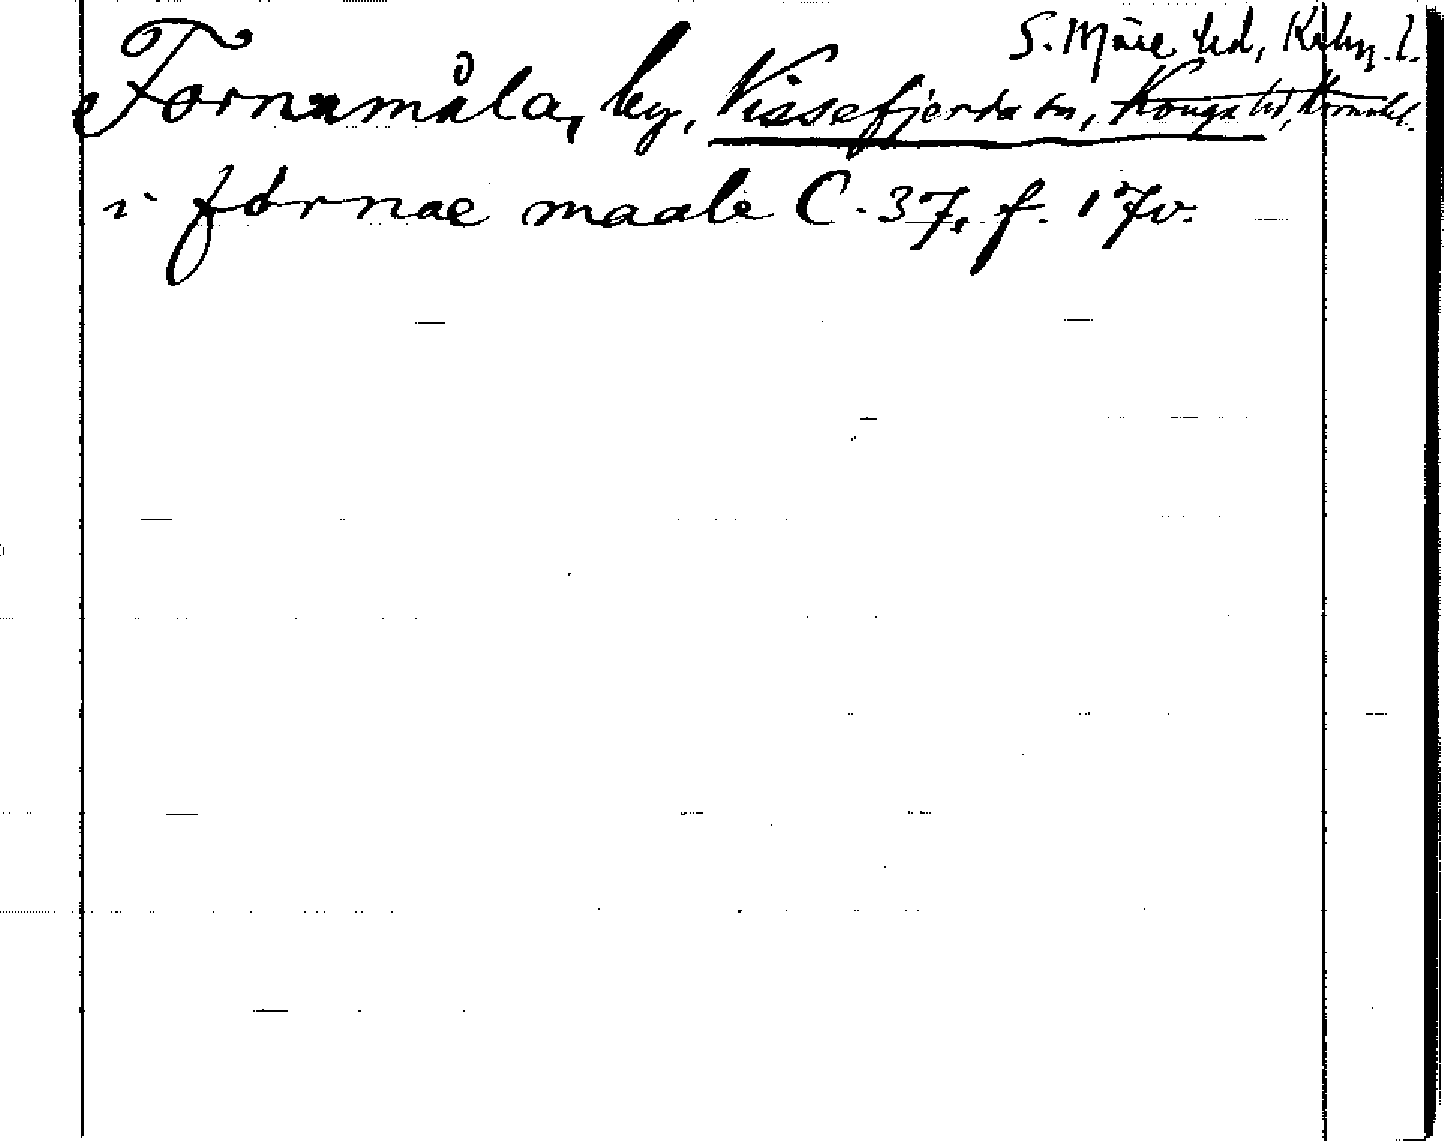 S. Möre hd, Kalm. l.
Fornamåla, by, Vissefjerda sn, Konga hd, Kronobl.
i førnae maale C. 37, f. 17v.